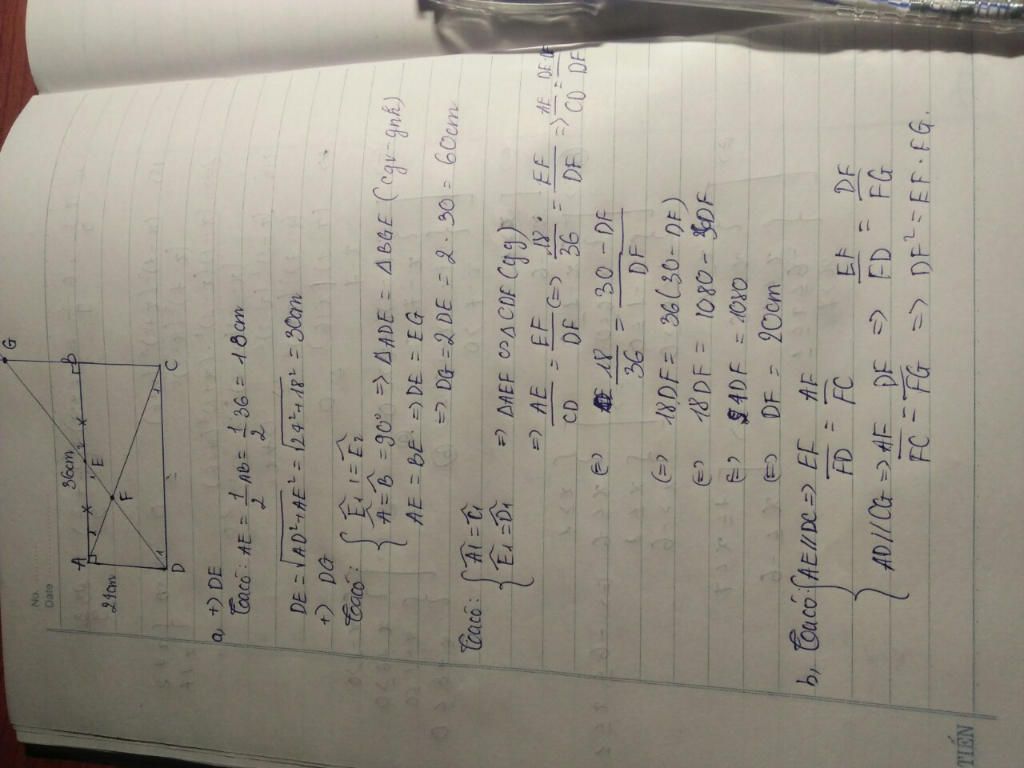 No.
Date
A
36cm
B
G
24cm
E
F
D
C
a, +) DE
Ta có: AE = 1/2 AB = 1/2 36 = 18cm
DE = √AD²+AE² = √24²+18² = 30cm
+) DG
Ta có: { Ê1 = Ê2
Â = B̂ = 90° => ΔADE = ΔBGE (cgv-gnk)
AE = BE => DE = EG
=> DG = 2DE = 2.30 = 60cm
Ta có: { Â1 = Ĉ1
Ê1 = D̂1 => ΔAEF ∽ ΔCDF (gg)
=> AE/CD = EF/DF (=> 18/36 = EF/DF => AE/CD = DE-DF/DF
(=) 18/36 = 30-DF/DF
(=) 18DF = 36(30-DF)
(=) 18DF = 1080-36DF
(=) 54DF = 1080
(=) DF = 20cm
b, Ta có: { AE//DC => EF/FD = AF/FC
AD//CG => AF/FC = DF/FG => EF/FD = DF/FG => DF² = EF.FG.
TIẾN